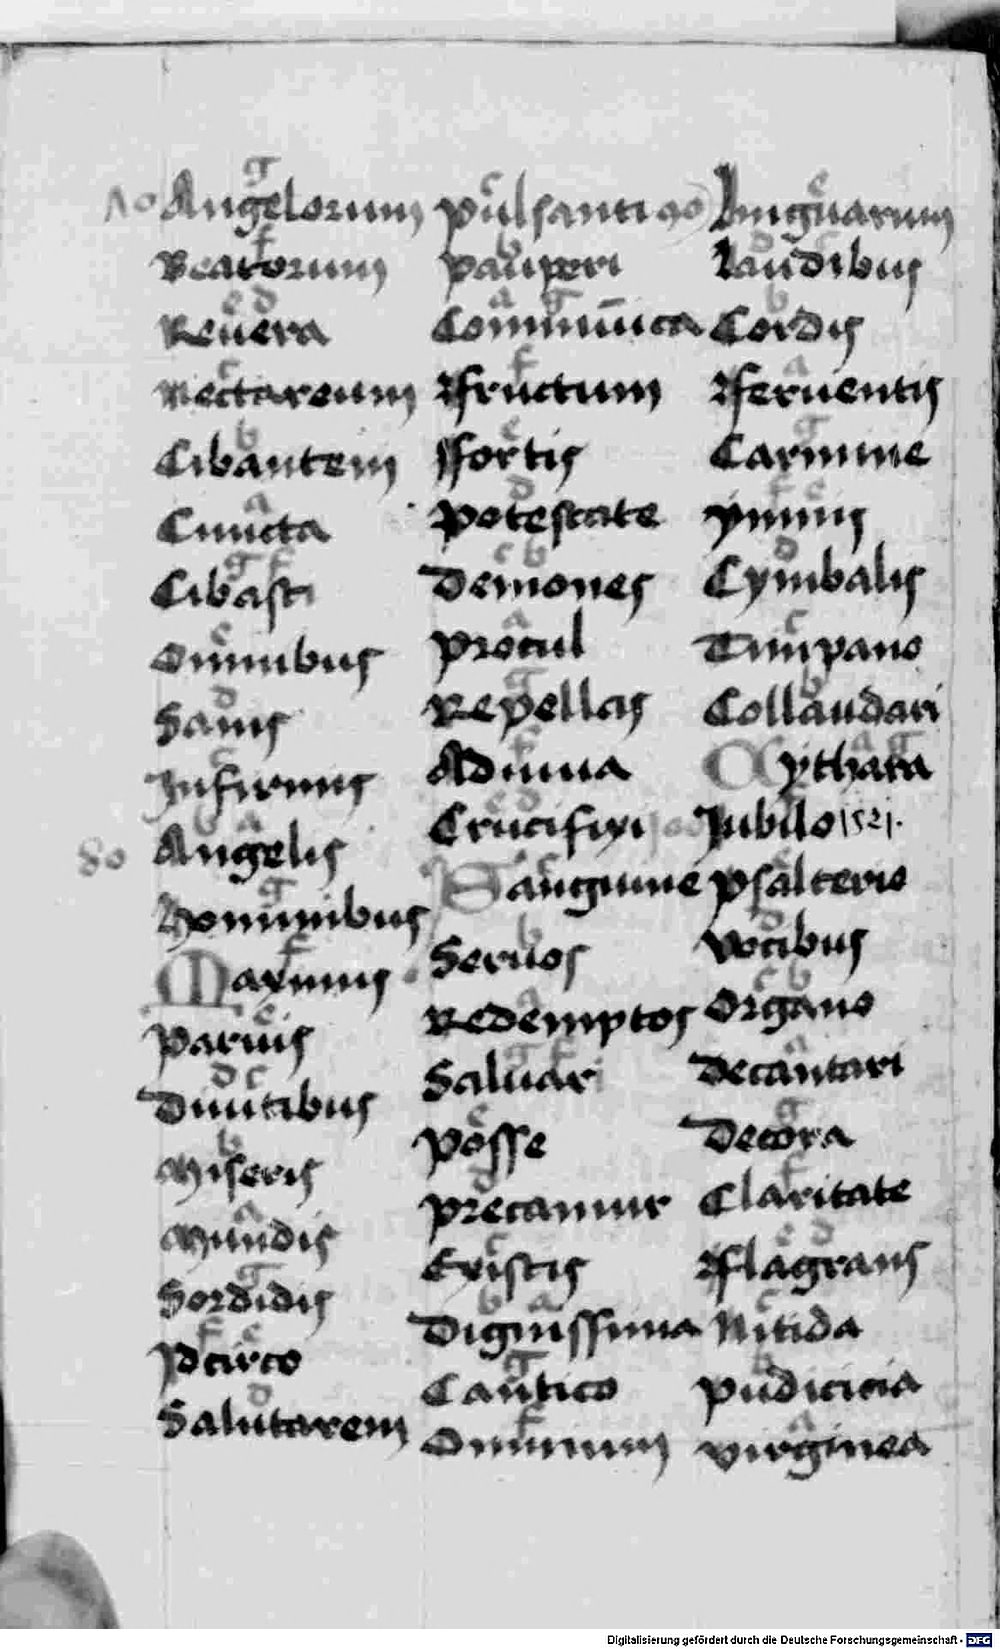 g
Angelorum
f
Beatorum
e d
Revera
c
Nectareum
b
Cibantem
a
Cuncta
g f
Cibasti
e
Omnibus
d
Sanis
c
Infirmis
b a
80 Angelis
g
Hominibus
f
Maximis
e
Parvis
d c
Divitibus
b
Miseris
a
Mundis
g
Sordidis
f e
Idcirco
d
Salutarem
c
Pulsanti 90
b
Pauperi
a g
Commūica
f
Ffructum
e
Ffortis
d
Potestate
c b
Demones
a
Procul
g
Repellas
f
Adiuua
e d
Crucifixi
c
Sanguine
b
Seruos
a
Redemptos
g f
Saluari
e
Posse
d
Precamur
c
Existis
b a
Dignissima
g
Cantico
f
Omnium
e
Linguarum
d c
Laudibus
b
Cordis
a
Fferuentis
g
Carmine
f e
ymnis
d
Cymbalis
c
Timpano
b
Collaudari
a g
Cythara
f
Iubilo 1521.
e
Psalterio
d
Vocibus
c b
Organo
a
Decantari
g
Decora
f
Claritate
e d
Fflagrans
c
Nitida
b
Pudicicia
a
Virginea
Digitalisierung gefördert durch die Deutsche Forschungsgemeinschaft - DFG